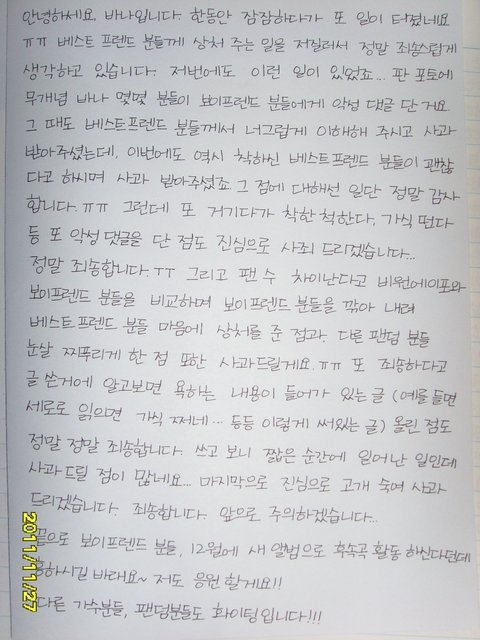 안녕하세요. 바나입니다. 한동안 잠잠하다가 또 일이 터졌네요
ㅠㅠ 베스트 프렌드 분들께 상처 주는 일을 저질러서 정말 죄송스럽게
생각하고 있습니다. 저번에도 이런 일이 있었죠... 판 포토에
무개념 바나 몇몇 분들이 보이프렌드 분들에게 악성 댓글 단 거요
그 때도 베스트프렌드 분들께서 너그럽게 이해해 주시고 사과
받아주셨는데, 이번에도 역시 착하신 베스트프렌드 분들이 괜찮
다고 하시며 사과 받아주셨죠. 그 점에 대해선 일단 정말 감사
합니다. ㅠㅠ 그런데 또 거기다가 착한 척한다, 가식 떤다
등 또 악성 댓글을 단 점도 진심으로 사죄 드리겠습니다...
정말 죄송합니다. ㅜㅜ 그리고 팬 수 차이난다고 비원에이포와
보이프렌드 분들을 비교하며 보이프렌드 분들을 깎아 내려
베스트프렌드 분들 마음에 상처를 준 점과, 다른 팬덤 분들
눈살 찌푸리게 한 점 또한 사과드릴게요. ㅠㅠ 또 죄송하다고
글 쓴거에 알고보면 욕하는 내용이 들어가 있는 글 (예를 들면
세로로 읽으면 가식 쩌네... 등등 이렇게 써있는 글) 올린 점도
정말 정말 죄송합니다. 쓰고 보니 짧은 순간에 일어난 일인데
사과 드릴 점이 많네요... 마지막으로 진심으로 고개 숙여 사과
드리겠습니다. 죄송합니다. 앞으로 주의하겠습니다...
끝으로 보이프렌드 분들, 12월에 새 앨범으로 후속곡 활동 하신다던데
하시길 바래요~ 저도 응원 할게요!!
다른 가수분들, 팬덤분들도 화이팅입니다!!!
2011/11/27